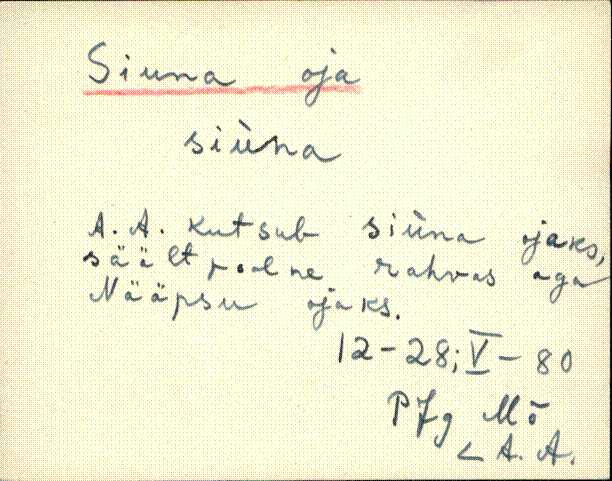 Siuna oja
siùna
A. A. kutsub siùna ojaks,
säält poolne rahvas aga
Nääpsu ojaks.
12-28; V - 80
PJg Mõ
< A. A.